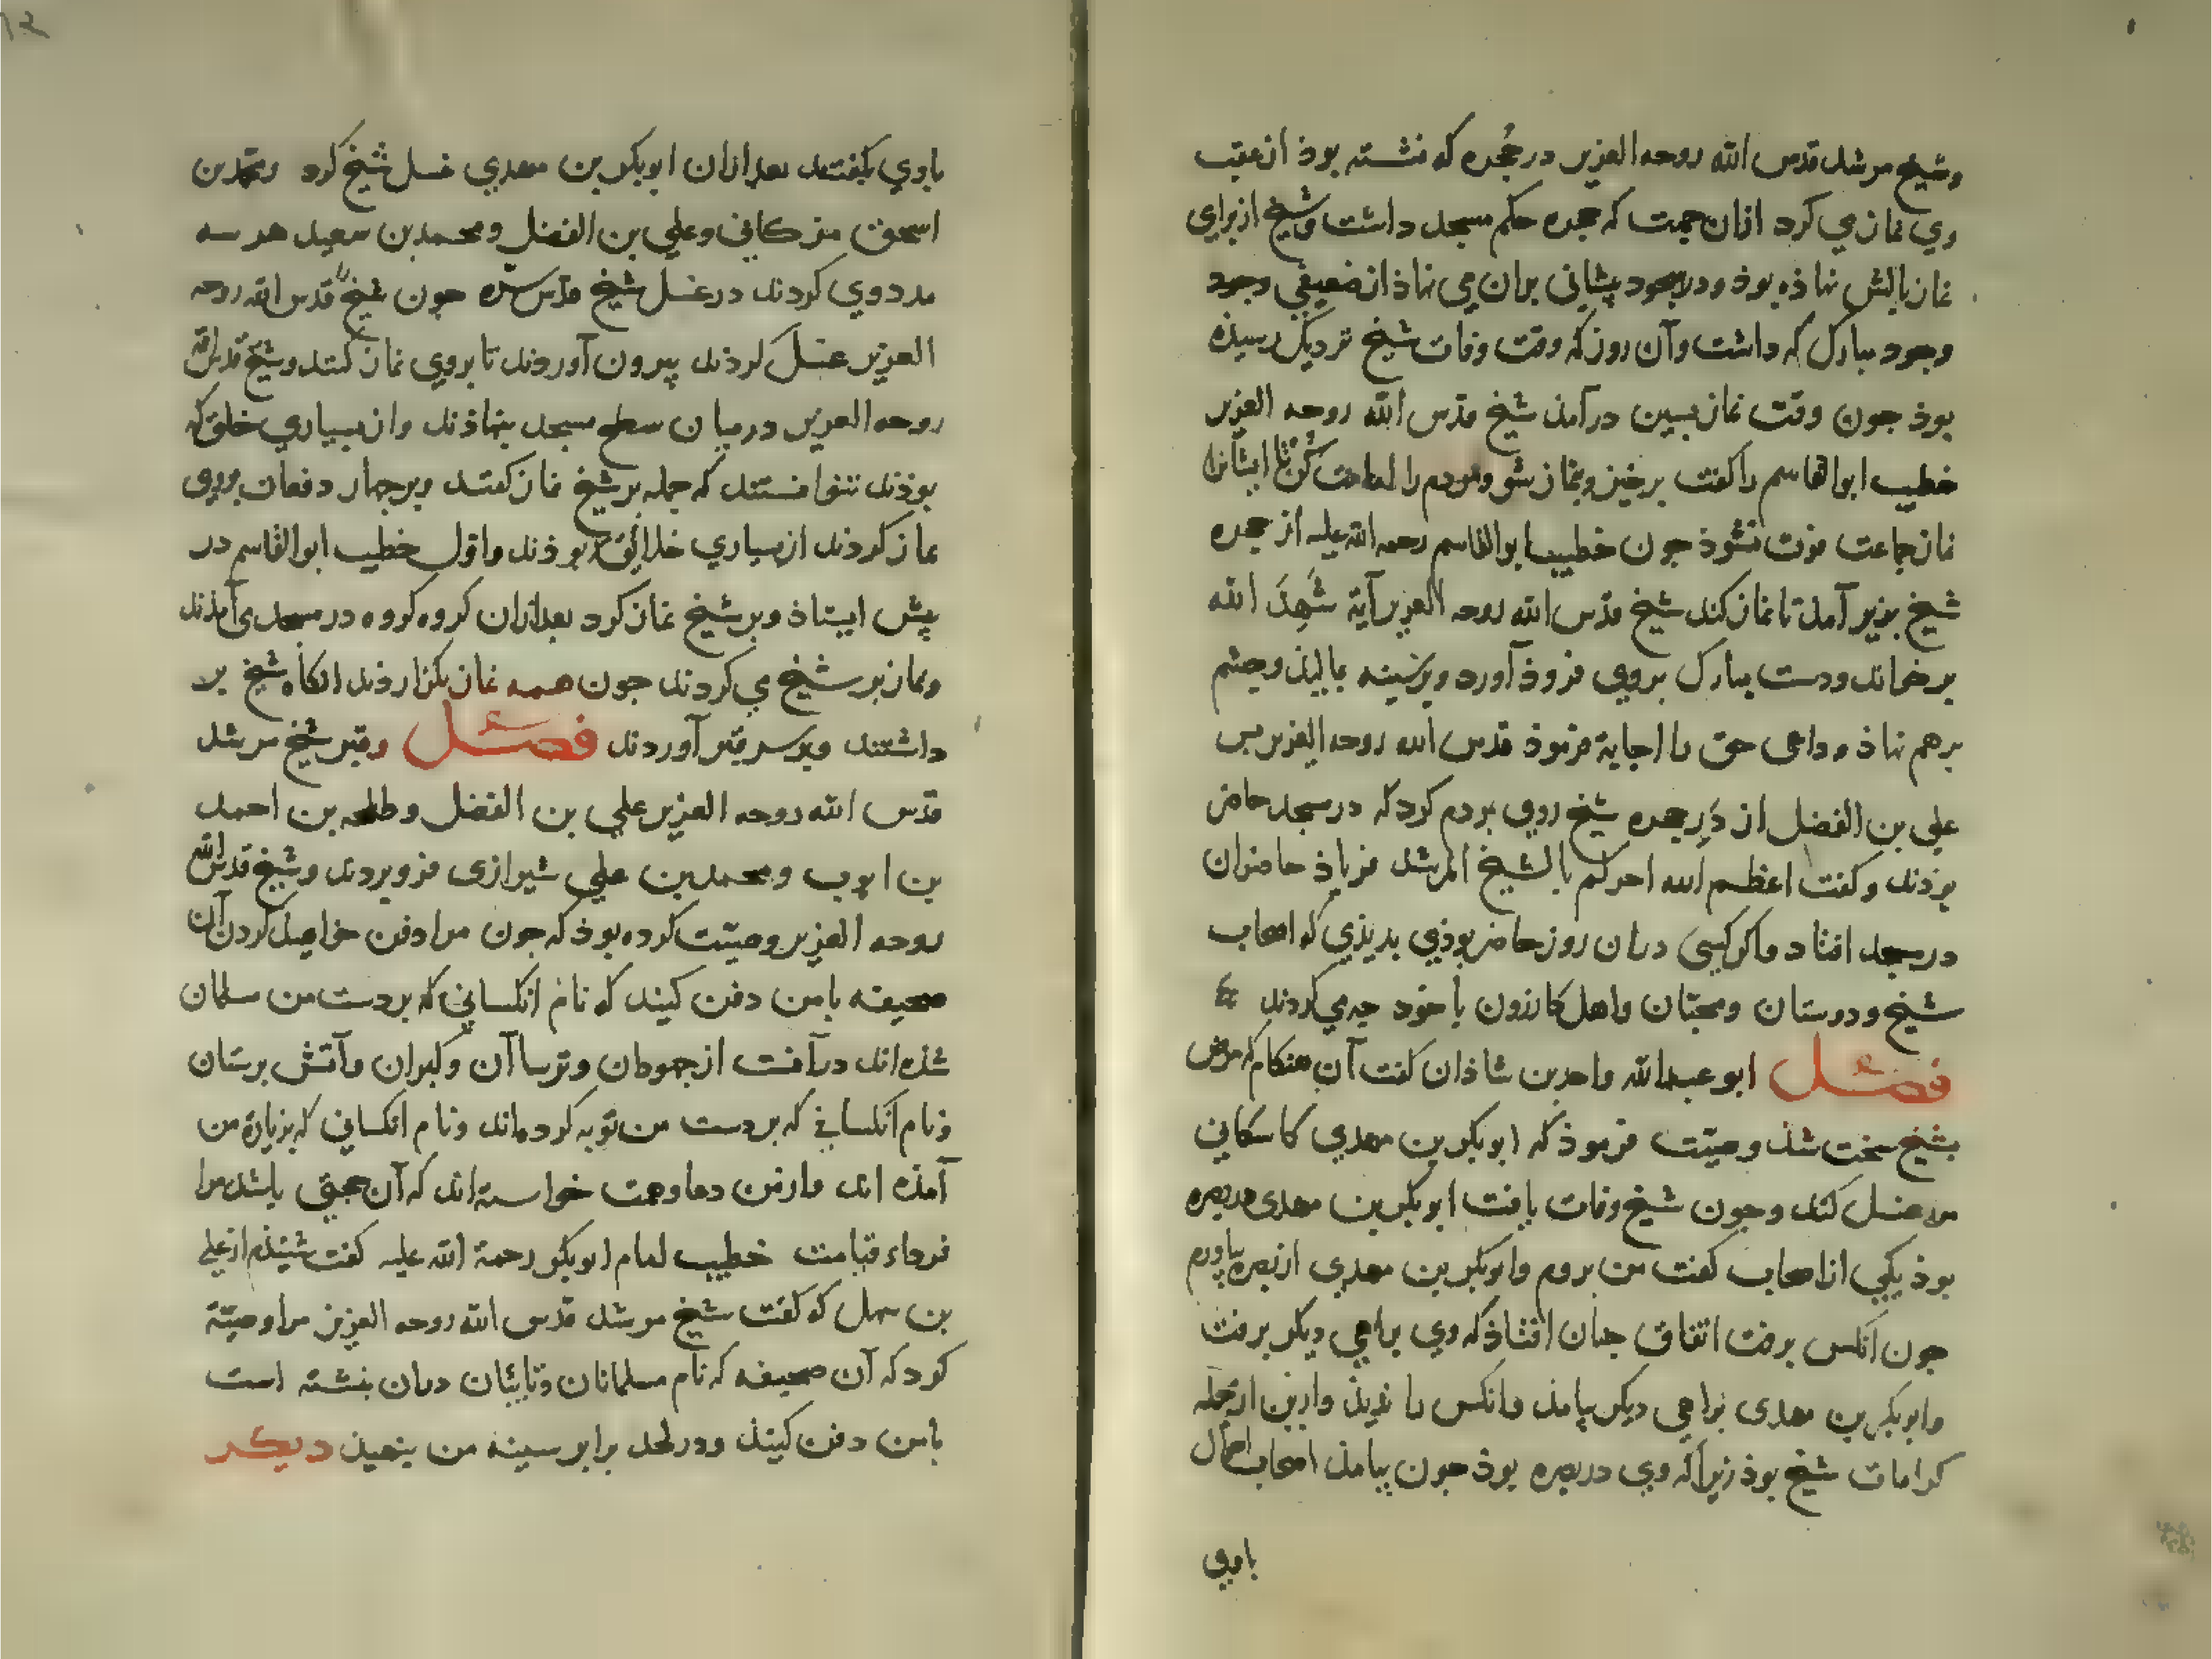 وشیخ مرشد قدس الله روحه العزیز در حُجره که نشسته بوذ از عقب
وي نماز مي کرد ازان جهت که حجره حکم مسجد داشت وشیخ از برای
نماز بالش نهاذه بوذ ودر سجود پیشانی بران می نهاذ از ضعیفي وجود
وجود مبارک که داشت وآن روز که وقت وفات شیخ نزدیک رسیذه
بوذ جون وقت نماز پسین درآمذ شیخ قدس الله روحه العزیز
خطیب ابوالقاسم را کفت برخیز وبنماز شو ومردم را امامت کن تا ایشانرا
نماز جماعت فوت نشوذ جون خطیب ابوالقاسم رحمه الله علیه از حجره
شیخ بزیر آمذ تا نماز کند شیخ قدس الله روحه العزیز آیة شَهِدَ الله
برخواند ودست مبارک بروی فروذ آورد وبر سینه بمالیذ وچشم
برهم نهاذ وداعی حق را اجابة فرموذ قدس الله روحه العزیز پس
علي بن الفضل از دَرِ حجره شیخ روی بردم کرد که در مسجد حاضر
بوذند وکفت اعظم الله اجرکم بالشیخ المرشد فریاذ حاضران
در مسجد افتاد واکر کسی دران روز حاضر بوذي بدیذي که اصحاب
شیخ ودوستان ومحبّان واهل کازرون با خوذ چه مي کردند
فصل ابو عبدالله واحد بن شاذان کفت آن هنکام که مرض
بشیخ سخت شذ وصیّت فرموذ که ابوبکر بن مهدي کاسکاني
مرا غسل کند وجون شیخ وفات یافت ابوبکر بن مهدی در بصره
بوذ یکي از اصحاب کفت من بروم وابوبکر بن مهدي از بصره بیاورم
جون انکس برفت اتفاق چنان افتاذ که وي براهي دیکر برفت
وابوبکر بن مهدی براهي دیکر بیامذ وانکس را ندیذ واین از جمله
کرامات شیخ بوذ زیرا که وي در بصره بوذ جون بیامذ اصحاب احوال
باوی
باوي بکفتند بعد ازان ابوبکر بن مهدي غسل شیخ کرد ومحمد بن
اسحق وعلي بن الفضل ومحمد بن سعید هر سه
مدد وي کردند در غسل شیخ قدس سرّه جون شیخ را قدس الله روحه
العزیز غسل کردند بیرون آوردند تا بروي نماز کنند وشیخ قدس الله
روحه العزیز در میان سطح مسجد بنهاذند واز بسیاري خلق که
بوذند نتوانستند که جمله بر شیخ نماز کنند وبر جهار دفعات بروی
نماز کردند از بسیاري خلائق که بوذند واول خطیب ابوالقاسم در
پیش ایستاذ وبر شیخ نماز کرد بعد ازان کروه کروه در مسجد می آمذند
ونماز بر شیخ مي کردند جون همه نماز بکزاردند آنکاه شیخ بر
داشتند وبر سر قبر آوردند فصل وقبر شیخ مرشد
قدس الله روحه العزیز علي بن الفضل وطلحه بن احمد
بن ایوب ومحمد بن علي شیرازی فرو بردند وشیخ قدس الله
روحه العزیز وصیّت کرده بوذ که جون مرا دفن خواهید کردن آن
صحیفه با من دفن کنید که نام انکساني که بر دست من مسلمان
شذه اند درآنست از جهودان وترساآن وکبران وآتش پرستان
ونام انکسانی که بر دست من توبه کرده اند ونام انکساني که بزیارة من
آمذه اند واز من دعا وهمت خواسته اند که آن حجتی باشد مرا
فرداء قیامت خطیب امام ابوبکر رحمة الله علیه کفت شنیذم از علي
بن سهل که کفت شیخ مرشد قدس الله روحه العزیز مرا وصیّة
کرد که آن صحیفه که نام مسلمانان وتایبان دران نبشته است
با من دفن کنید ودر لحد برابر سینه من بنهید دیکر